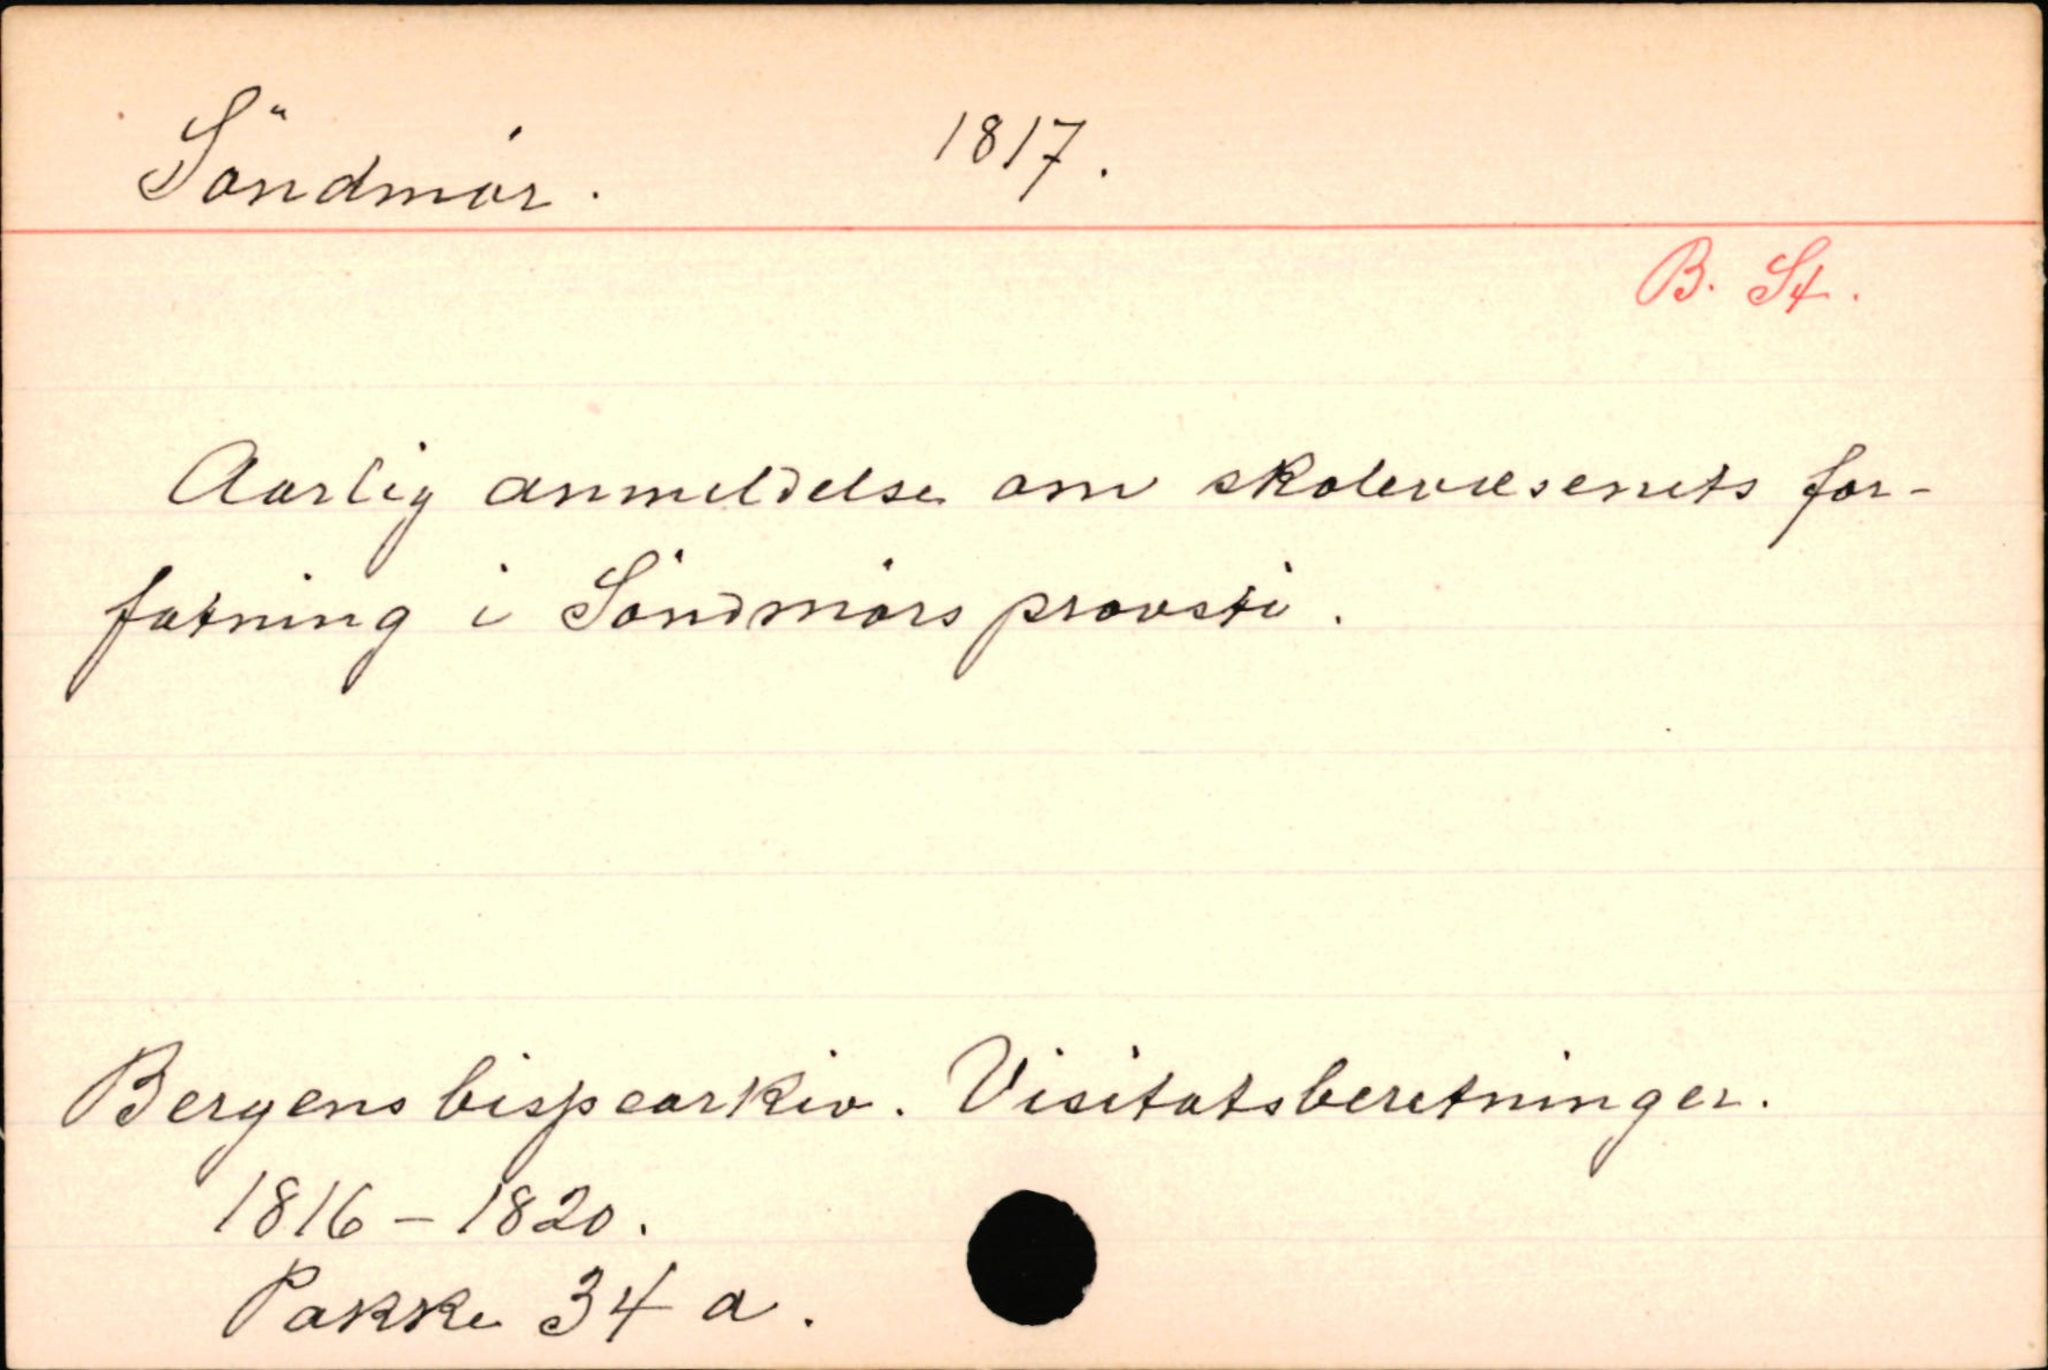 Söndmör. 1817.
B. St.
Aarlig anmeldelse om skolevæsenets for-
fatning i Söndmörs provsti.
Bergens bispearkiv. Visitatsberetninger.
1816-1820.
Pakke 34 a.